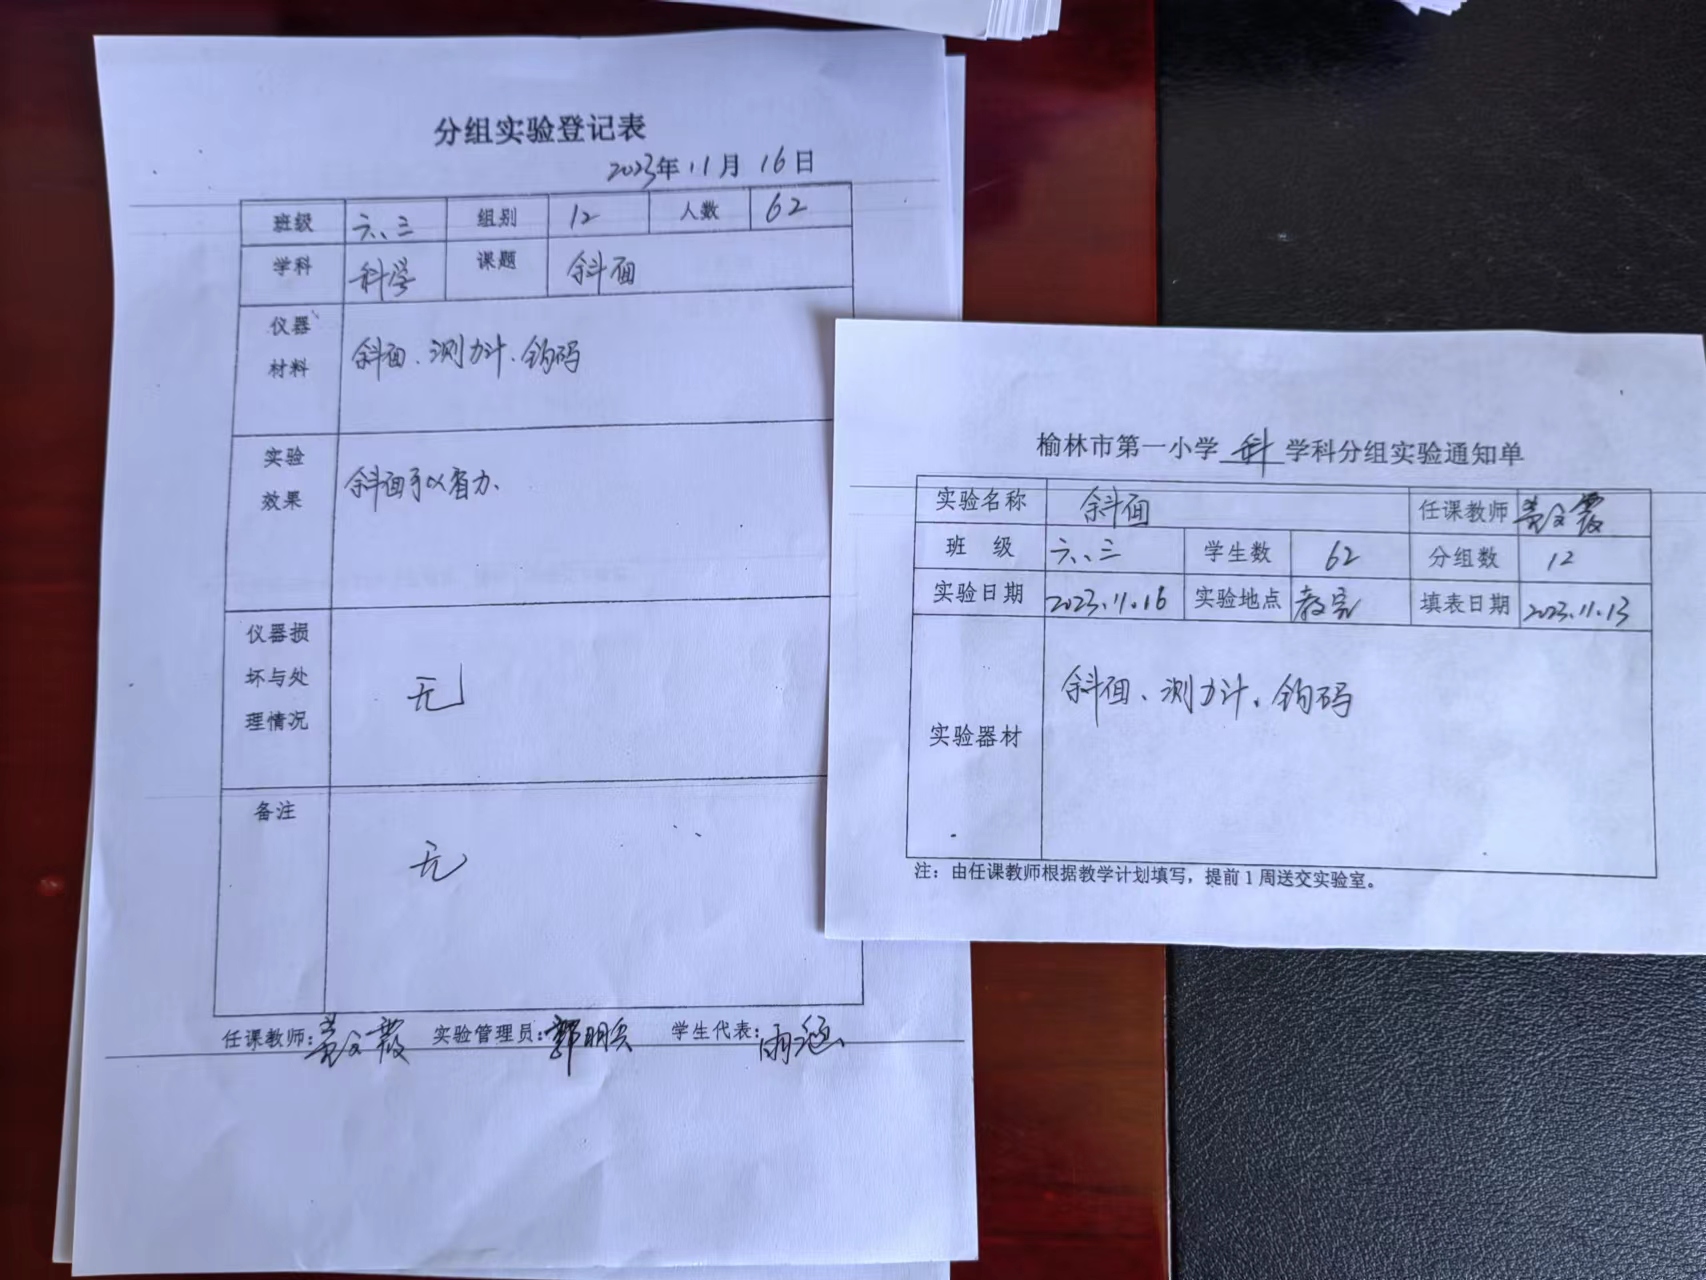 分组实验登记表
2023年11月16日
班级 六、三 组别 12 人数 62
学科 科学 课题 斜面
仪器材料 斜面、测力计、钩码
实验效果 斜面可以省力、
仪器损坏与处理情况 无
备注 无
任课教师: 实验管理员: 学生代表: 雨涵
榆林市第一小学 科 学科分组实验通知单
实验名称 斜面 任课教师
班 级 六、三 学生数 62 分组数 12
实验日期 2023.11.16 实验地点 教室 填表日期 2023.11.13
实验器材 斜面、测力计、钩码
注：由任课教师根据教学计划填写，提前1周送交实验室。